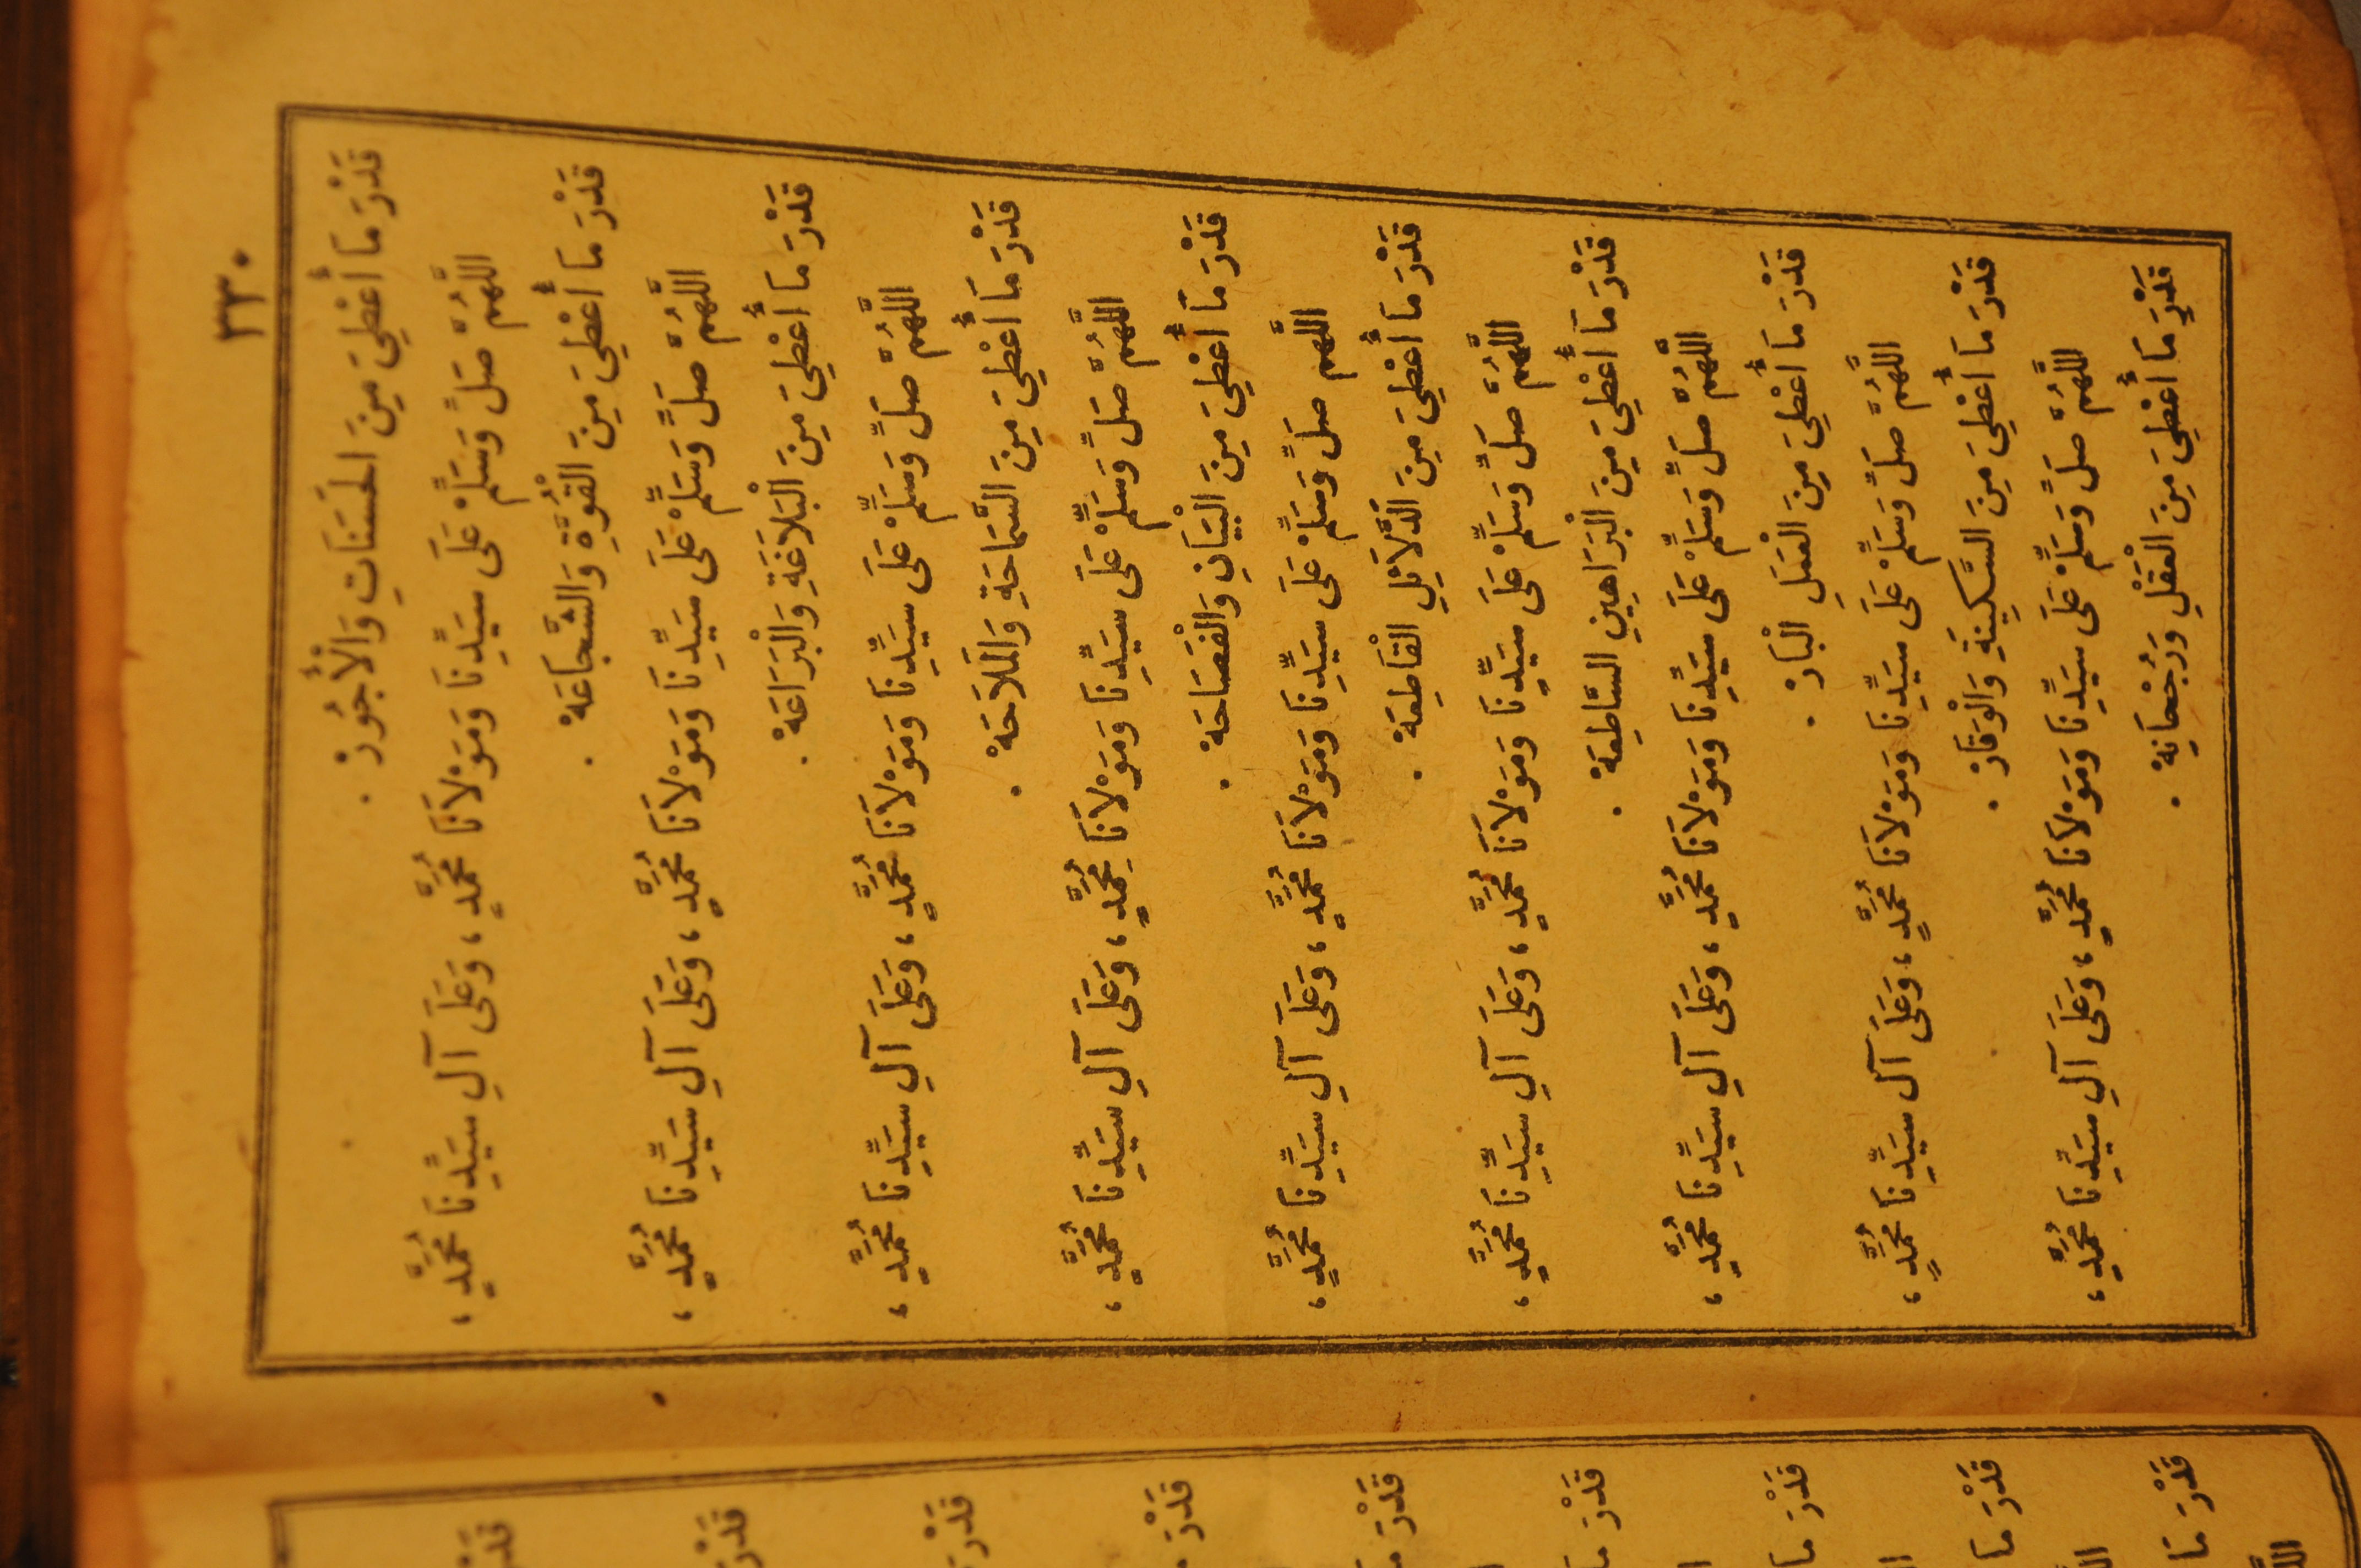 ٣٣٠
قَدْرَ مَا أُعْطِيَ مِنَ الْحَسَنَاتِ وَالْأُجُورْ .
اللَّهُمَّ صَلِّ وَسَلِّمْ عَلَى سَيِّدِنَا وَمَوْلَانَا مُحَمَّدٍ ، وَعَلَى آلِ سَيِّدِنَا مُحَمَّدٍ ،
قَدْرَ مَا أُعْطِيَ مِنَ الْقُوَّةِ وَالشَّجَاعَهْ .
اللَّهُمَّ صَلِّ وَسَلِّمْ عَلَى سَيِّدِنَا وَمَوْلَانَا مُحَمَّدٍ ، وَعَلَى آلِ سَيِّدِنَا مُحَمَّدٍ ،
قَدْرَ مَا أُعْطِيَ مِنَ الْبَلَاغَةِ وَالْبَرَاعَهْ .
اللَّهُمَّ صَلِّ وَسَلِّمْ عَلَى سَيِّدِنَا وَمَوْلَانَا مُحَمَّدٍ ، وَعَلَى آلِ سَيِّدِنَا مُحَمَّدٍ ،
قَدْرَ مَا أُعْطِيَ مِنَ السَّمَاحَةِ وَالْمَلَاحَهْ .
اللَّهُمَّ صَلِّ وَسَلِّمْ عَلَى سَيِّدِنَا وَمَوْلَانَا مُحَمَّدٍ ، وَعَلَى آلِ سَيِّدِنَا مُحَمَّدٍ ،
قَدْرَ مَا أُعْطِيَ مِنَ الْبَيَانِ وَالْفَصَاحَهْ .
اللَّهُمَّ صَلِّ وَسَلِّمْ عَلَى سَيِّدِنَا وَمَوْلَانَا مُحَمَّدٍ ، وَعَلَى آلِ سَيِّدِنَا مُحَمَّدٍ ،
قَدْرَ مَا أُعْطِيَ مِنَ الدَّلَائِلِ الْقَاطِعَهْ .
اللَّهُمَّ صَلِّ وَسَلِّمْ عَلَى سَيِّدِنَا وَمَوْلَانَا مُحَمَّدٍ ، وَعَلَى آلِ سَيِّدِنَا مُحَمَّدٍ ،
قَدْرَ مَا أُعْطِيَ مِنَ الْبَرَاهِينِ السَّاطِعَهْ .
اللَّهُمَّ صَلِّ وَسَلِّمْ عَلَى سَيِّدِنَا وَمَوْلَانَا مُحَمَّدٍ ، وَعَلَى آلِ سَيِّدِنَا مُحَمَّدٍ ،
قَدْرَ مَا أُعْطِيَ مِنَ الْعَمَلِ الْبَارْ .
اللَّهُمَّ صَلِّ وَسَلِّمْ عَلَى سَيِّدِنَا وَمَوْلَانَا مُحَمَّدٍ ، وَعَلَى آلِ سَيِّدِنَا مُحَمَّدٍ ،
قَدْرَ مَا أُعْطِيَ مِنَ السَّكِينَةِ وَالْوَقَارْ .
اللَّهُمَّ صَلِّ وَسَلِّمْ عَلَى سَيِّدِنَا وَمَوْلَانَا مُحَمَّدٍ ، وَعَلَى آلِ سَيِّدِنَا مُحَمَّدٍ ،
قَدْرَ مَا أُعْطِيَ مِنَ الْعَقْلِ وَرُجْحَانِهْ .
قَدْرَ
قَدْرَ
قَدْرَ
قَدْرَ
قَدْرَ
قَدْرَ
قَدْرَ مَا
قَدْرَ مَا
قَدْرَ مَا